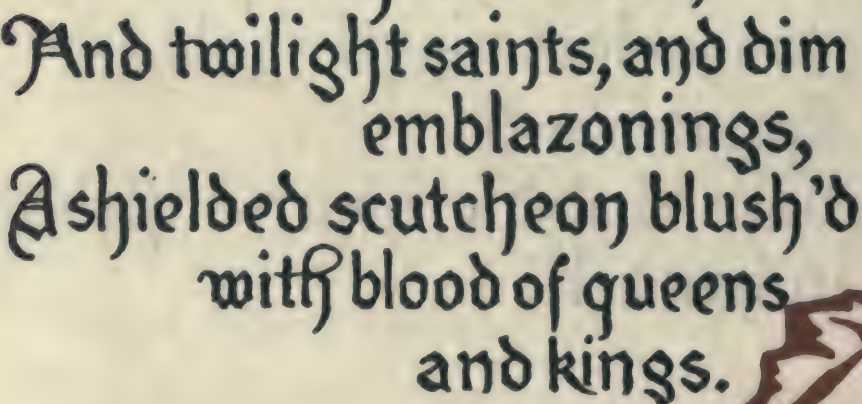 And twilight saints, and dim
emblazonings,
A shielded scutcheon blush'd
with blood of queens
and kings.